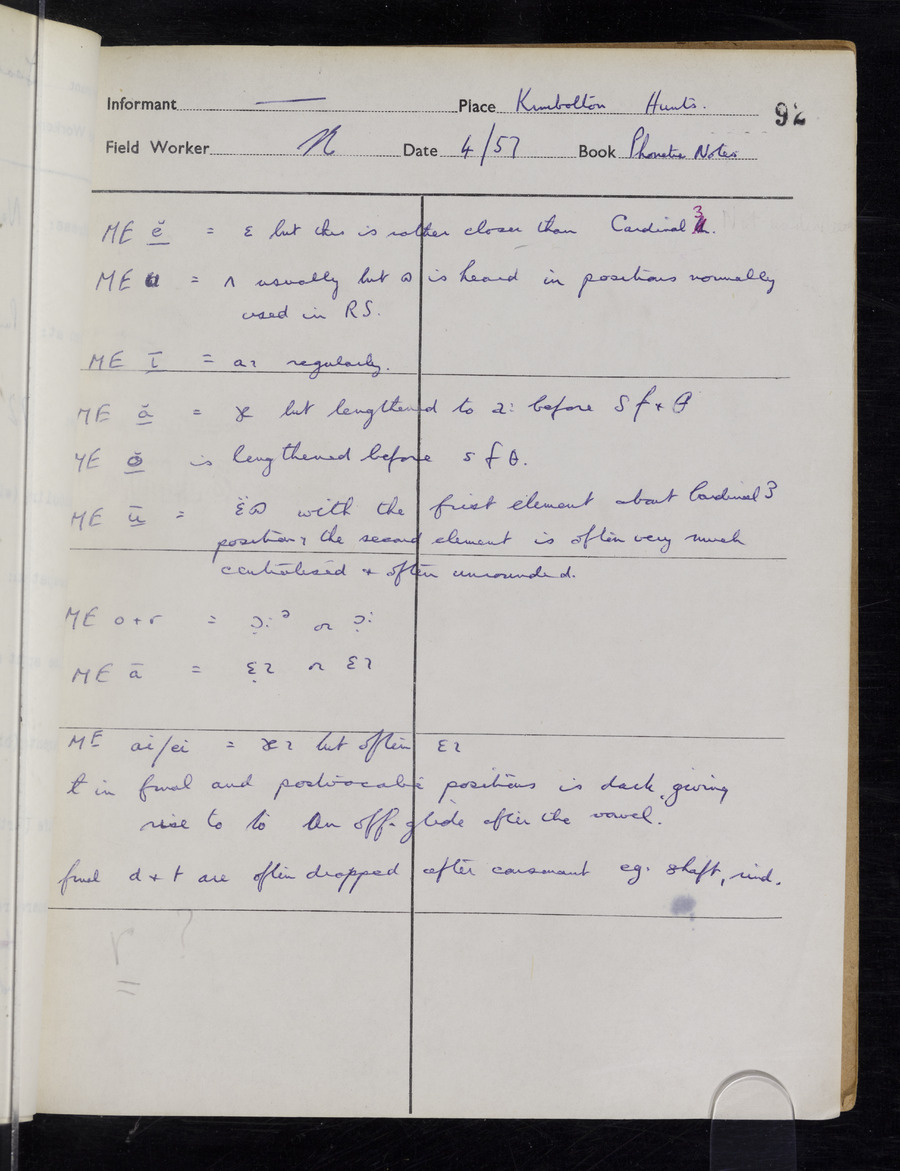 Informant — Place Kimbolton Hunts. 92
Field Worker N Date 4/57 Book Phonetic Notes
ME ĕ = ɛ but this is rather closer than Cardinal 3.
ME u = ʌ usually but ɷ is heard in positions normally
used in RS.
ME ī = aɪ regularly.
ME ă = æ but lengthened to a: before s f + θ
ME ŏ is lengthened before s f θ.
ME ū = ɛ̈ɷ with the first element about Cardinal 3
position, the second element is often very much
centralised + often unrounded.
ME o+r = ɔ̣:ᵊ or ɔ̣:
ME ā = ɛ̣ɪ or ɛɪ
ME ai/ei = æɪ but often ɛɪ
ɫ in final and postvocalic positions is dark, giving
rise to to an off-glide after the vowel.
final d + t are often dropped after consonant eg. shaft, rind.
r ?